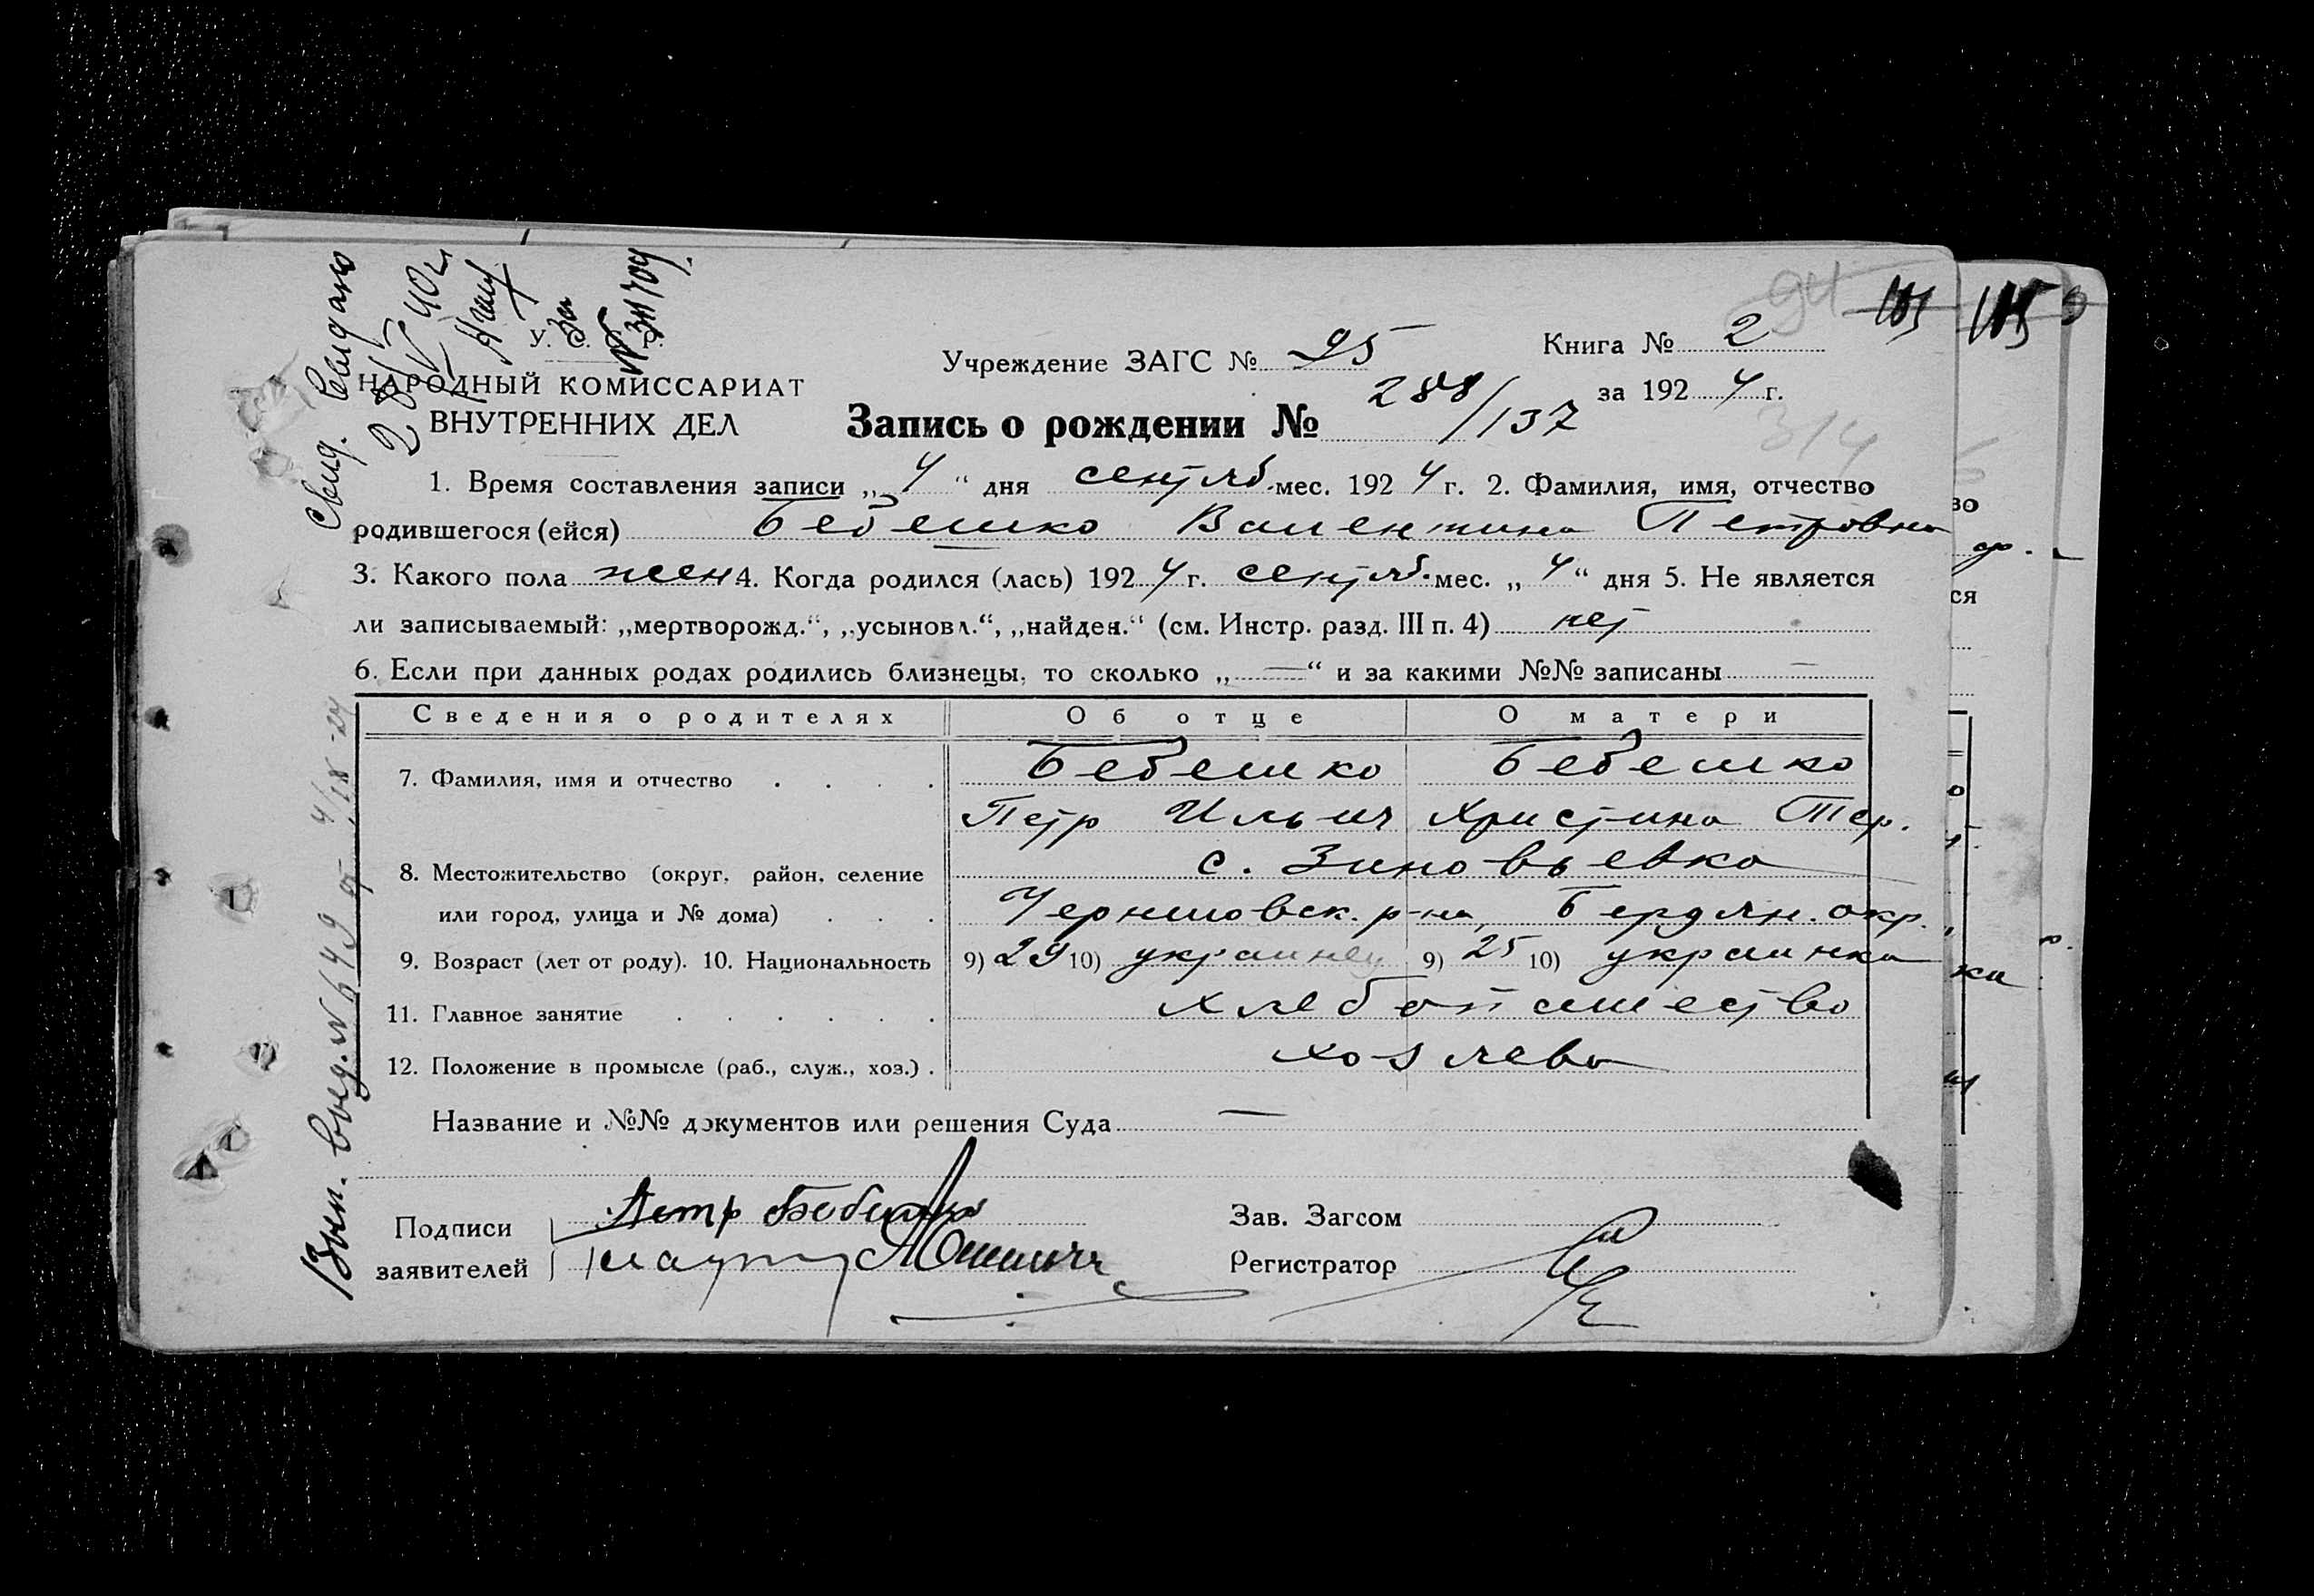 94 105 105
У. С. С. Р.
Учреждение ЗАГС № 95
Книга № 2
НАРОДНЫЙ КОМИССАРИАТ
за 1924 г.
ВНУТРЕННИХ ДЕЛ
Запись о рождении № 288/137
314
1. Время составления записи „4“ дня сентяб. мес. 1924 г. 2. Фамилия, имя, отчество
родившегося (ейся) Бебешко Валентина Петровна
3. Какого пола жен 4. Когда родился (лась) 1924 г. сентяб. мес. „4“ дня 5. Не является
ли записываемый: „мертворожд.“, „усыновл.“, „найден.“ (см. Инстр. разд. III п. 4) нет
6. Если при данных родах родились близнецы, то сколько „—“ и за какими №№ записаны —
Сведения о родителях Об отце О матери
7. Фамилия, имя и отчество . . . . Бебешко Бебешко
Петр Ильич Христина Тер.
8. Местожительство (округ, район, селение с. Зиновьевка
или город, улица и № дома) . . . Черниговск. р-на, Бердян. окр.
9. Возраст (лет от роду). 10. Национальность 9) 29 10) украинец 9) 25 10) украинка
11. Главное занятие . . . . . . хлебопашество
12. Положение в промысле (раб., служ., хоз.) . хозяева
Название и №№ документов или решения Суда —
Подписи Петр Бебешко
заявителей
Зав. Загсом
Регистратор
Свид.
28/V 40 г.
За № 311709.
Вып. выд. № 649 от 4/IX-24